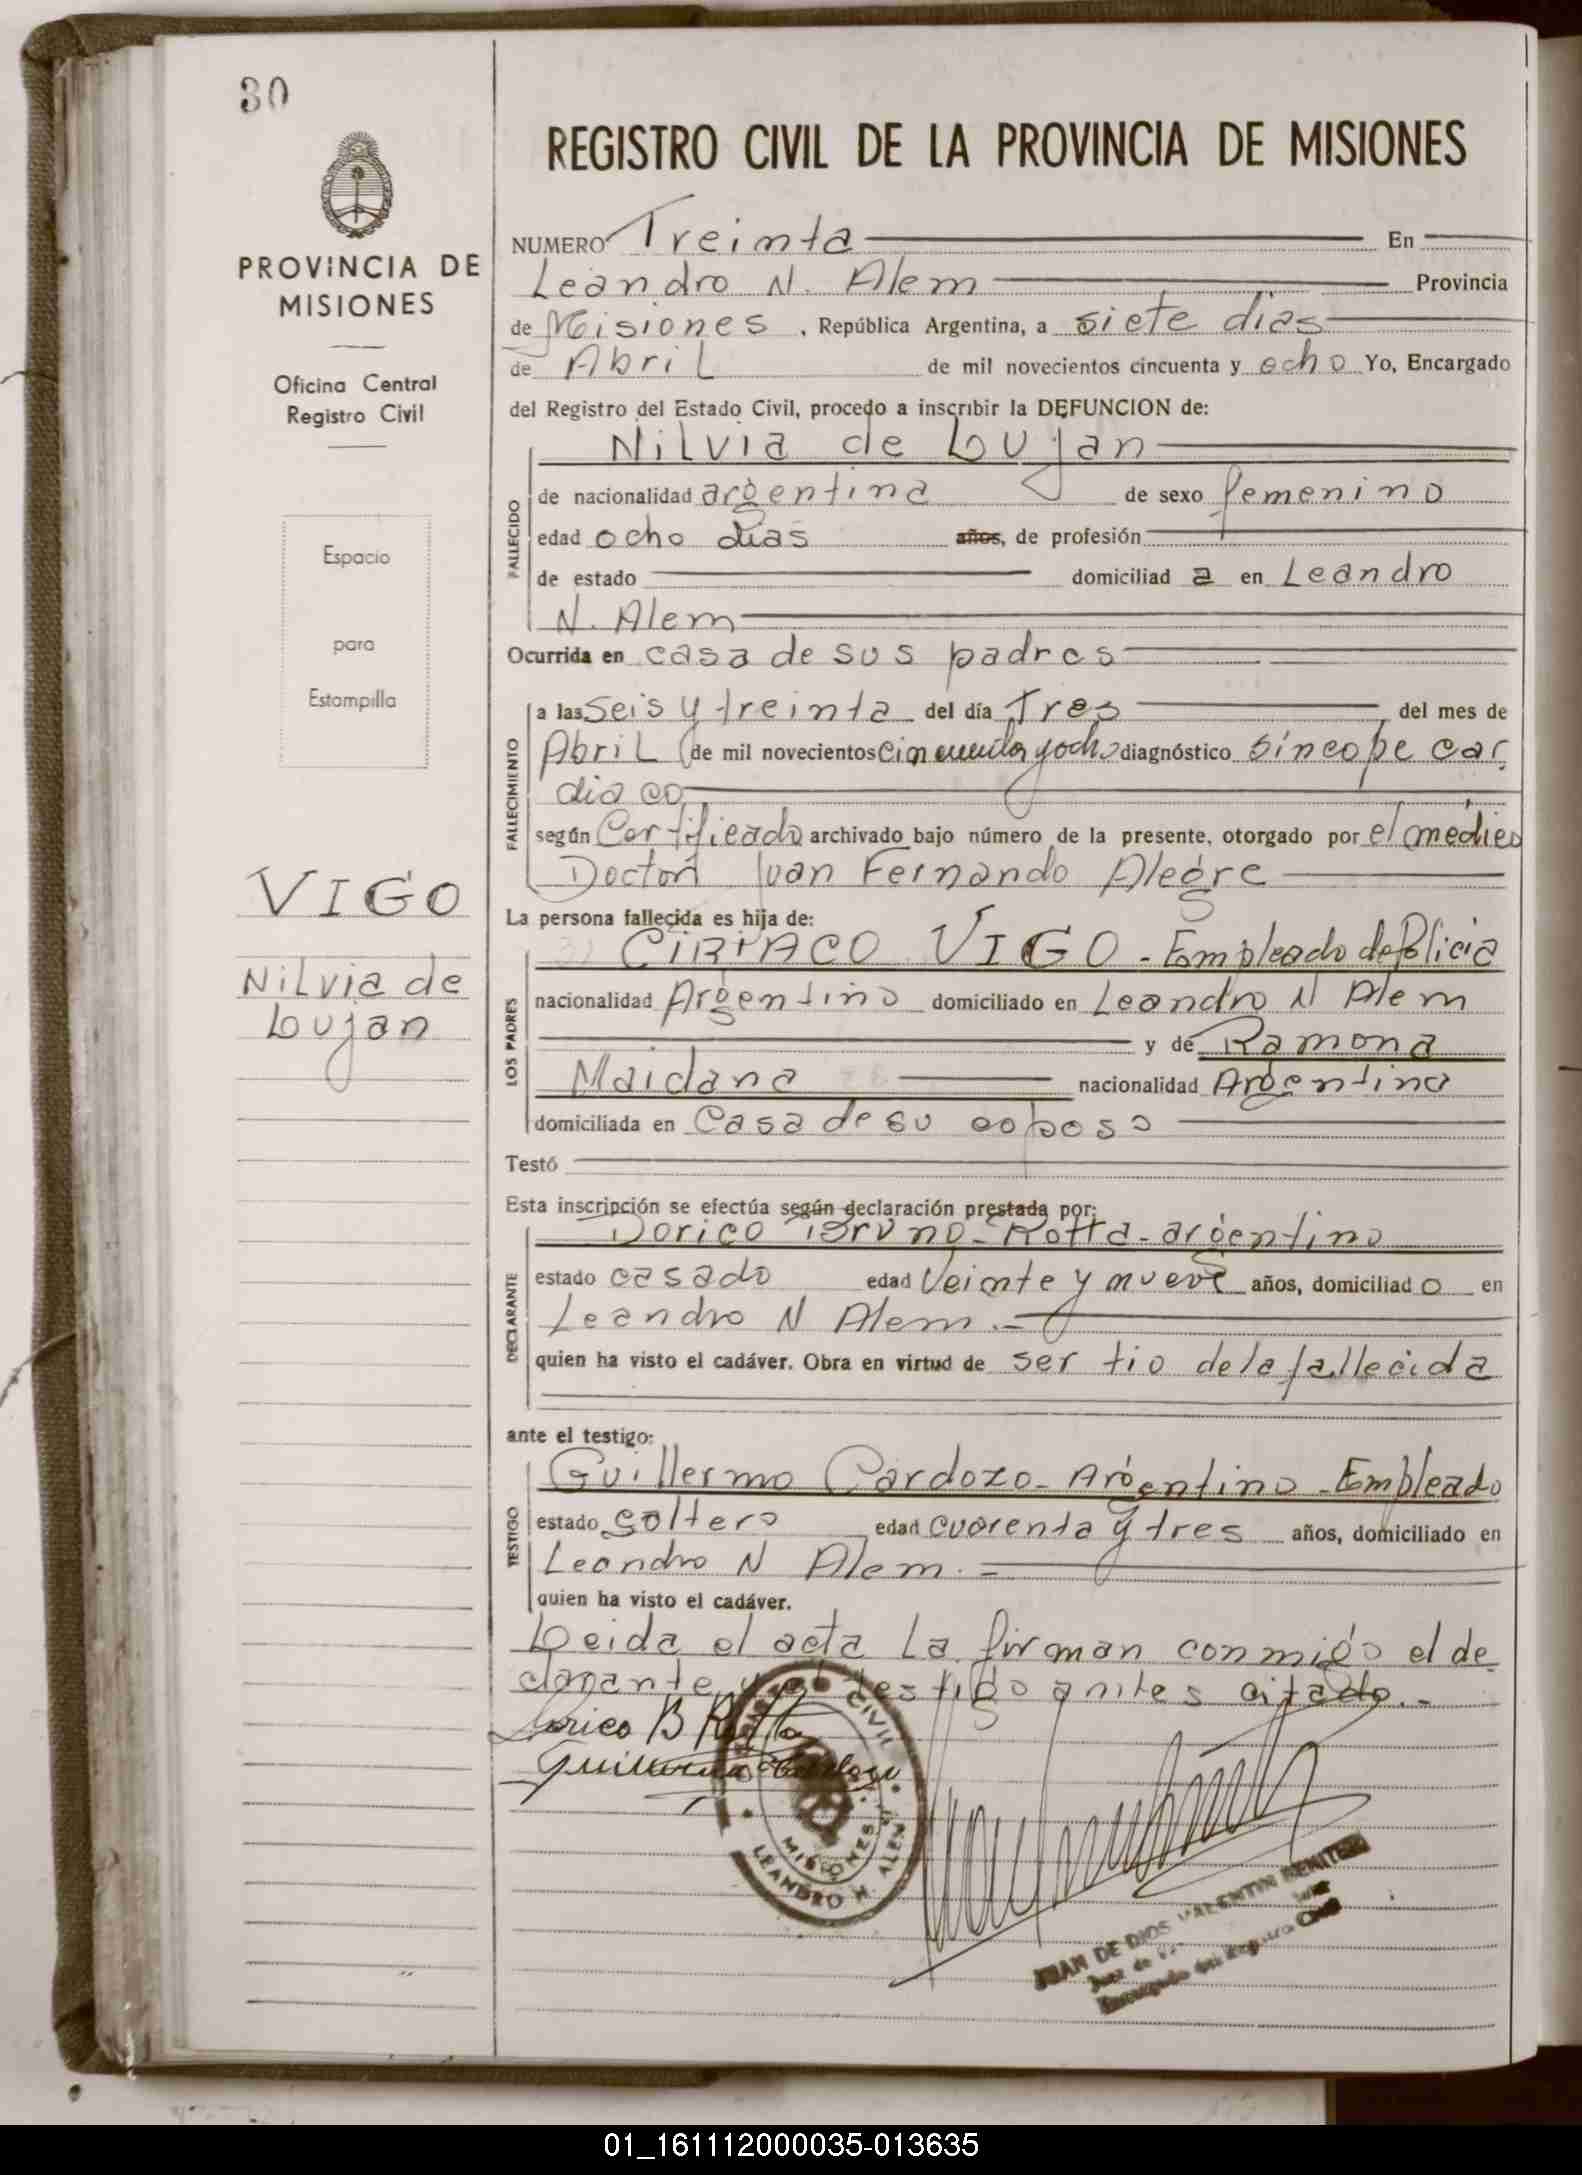 30
PROVINCIA DE
MISIONES
Oficina Central
Registro Civil
Espacio
para
Estampilla
VIGO
Nilvia de
Lujan
REGISTRO CIVIL DE LA PROVINCIA DE MISIONES
NUMERO Treinta En
Leandro N. Alem Provincia
de Misiones , República Argentina, a siete dias
de Abril de mil novecientos cincuenta y ocho Yo, Encargado
del Registro del Estado Civil, procedo a inscribir la DEFUNCION de:
Nilvia de Lujan
FALLECIDO
de nacionalidad argentina de sexo femenino
edad ocho dias años, de profesión
de estado domiciliad a en Leandro
N. Alem
Ocurrida en casa de sus padres
FALLECIMIENTO
a las seis y treinta del día Tres del mes de
Abril de mil novecientos cincuenta y ocho diagnóstico síncope car
diaco
según Certificado archivado bajo número de la presente, otorgado por el médico
Doctor Juan Fernando Alegre
La persona fallecida es hija de:
LOS PADRES
CIRIACO VIGO - Empleado de Policia
nacionalidad Argentino domiciliado en Leandro N Alem
y de Ramona
Maidana nacionalidad Argentina
domiciliada en Casa de su esposo
Testó
Esta inscripción se efectúa según declaración prestada por:
DECLARANTE
Dorico Bruno - Rotta - argentino
estado casado edad Veinte y nueve años, domiciliad o en
Leandro N Alem . -
quien ha visto el cadáver. Obra en virtud de ser tio de la fallecida
ante el testigo:
TESTIGO
Guillermo Cardozo - Argentino - Empleado
estado soltero edad cuarenta y tres años, domiciliado en
Leandro N Alem . -
quien ha visto el cadáver.
Leida el acta la firman conmigo el de
clarante y el testigo antes citado . -
Dorico B Rotta
Guillermo Cardozo
REGISTRO CIVIL
MISIONES
LEANDRO N. ALEM
JUAN DE DIOS VALENTIN BENITEZ
Juez de
Encargado del Registro Civil
01_161112000035-013635